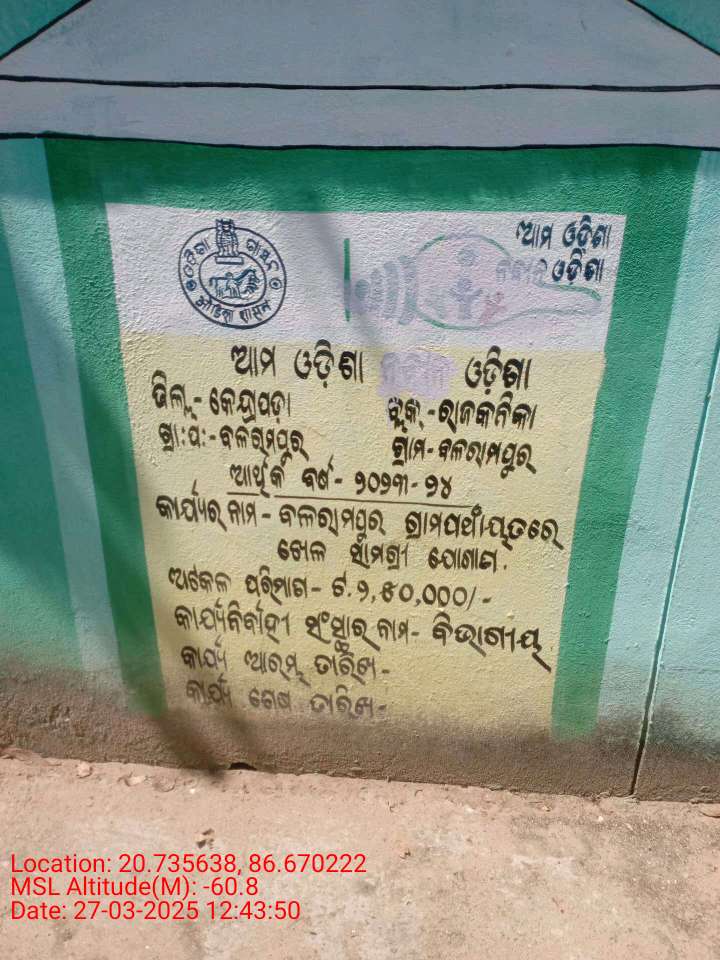 ଓଡ଼ିଶା ଶାସନ
ଓଡିଶା ଶାସନ
ଆମ ଓଡ଼ିଶା
ନବୀନ ଓଡ଼ିଶା
ଆମ ଓଡ଼ିଶା ନବୀନ ଓଡ଼ିଶା
ଜିଲ୍ଲା - କେନ୍ଦ୍ରାପଡ଼ା ବ୍ଲକ୍ - ରାଜକନିକା
ଗ୍ରା:ପ:- ବଳରାମପୁର ଗ୍ରାମ - ବଳରାମପୁର
ଆର୍ଥିକ ବର୍ଷ - ୨୦୨୩-୨୪
କାର୍ଯ୍ୟର ନାମ - ବଳରାମପୁର ଗ୍ରାମପଞ୍ଚାୟତରେ
ଖେଳ ସାମଗ୍ରୀ ଯୋଗାଣ.
ଅଟକଳ ପରିମାଣ - ଟ.୨,୫୦,୦୦୦/-
କାର୍ଯ୍ୟନିର୍ବାହୀ ସଂସ୍ଥାର ନାମ - ବିଭାଗୀୟ
କାର୍ଯ୍ୟ ଆରମ୍ଭ ତାରିଖ -
କାର୍ଯ୍ୟ ଶେଷ ତାରିଖ -
Location: 20.735638, 86.670222
MSL Altitude(M): -60.8
Date: 27-03-2025 12:43:50